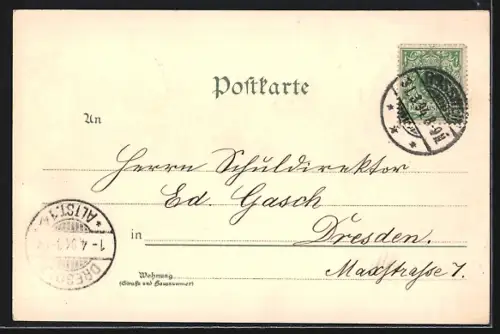 Postkarte
An
Herrn Schuldirektor
Ed. Gasch
in Dresden.
Maxstrasse 7.
Wohnung
(Straße und Hausnummer)
* ALTST. 1 *
DRESD